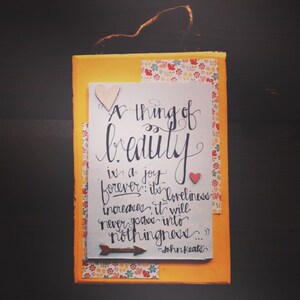 "A thing of
beauty
is a joy
forever: its loveliness
increases; it will
never pass into
nothingness..."
-John Keats